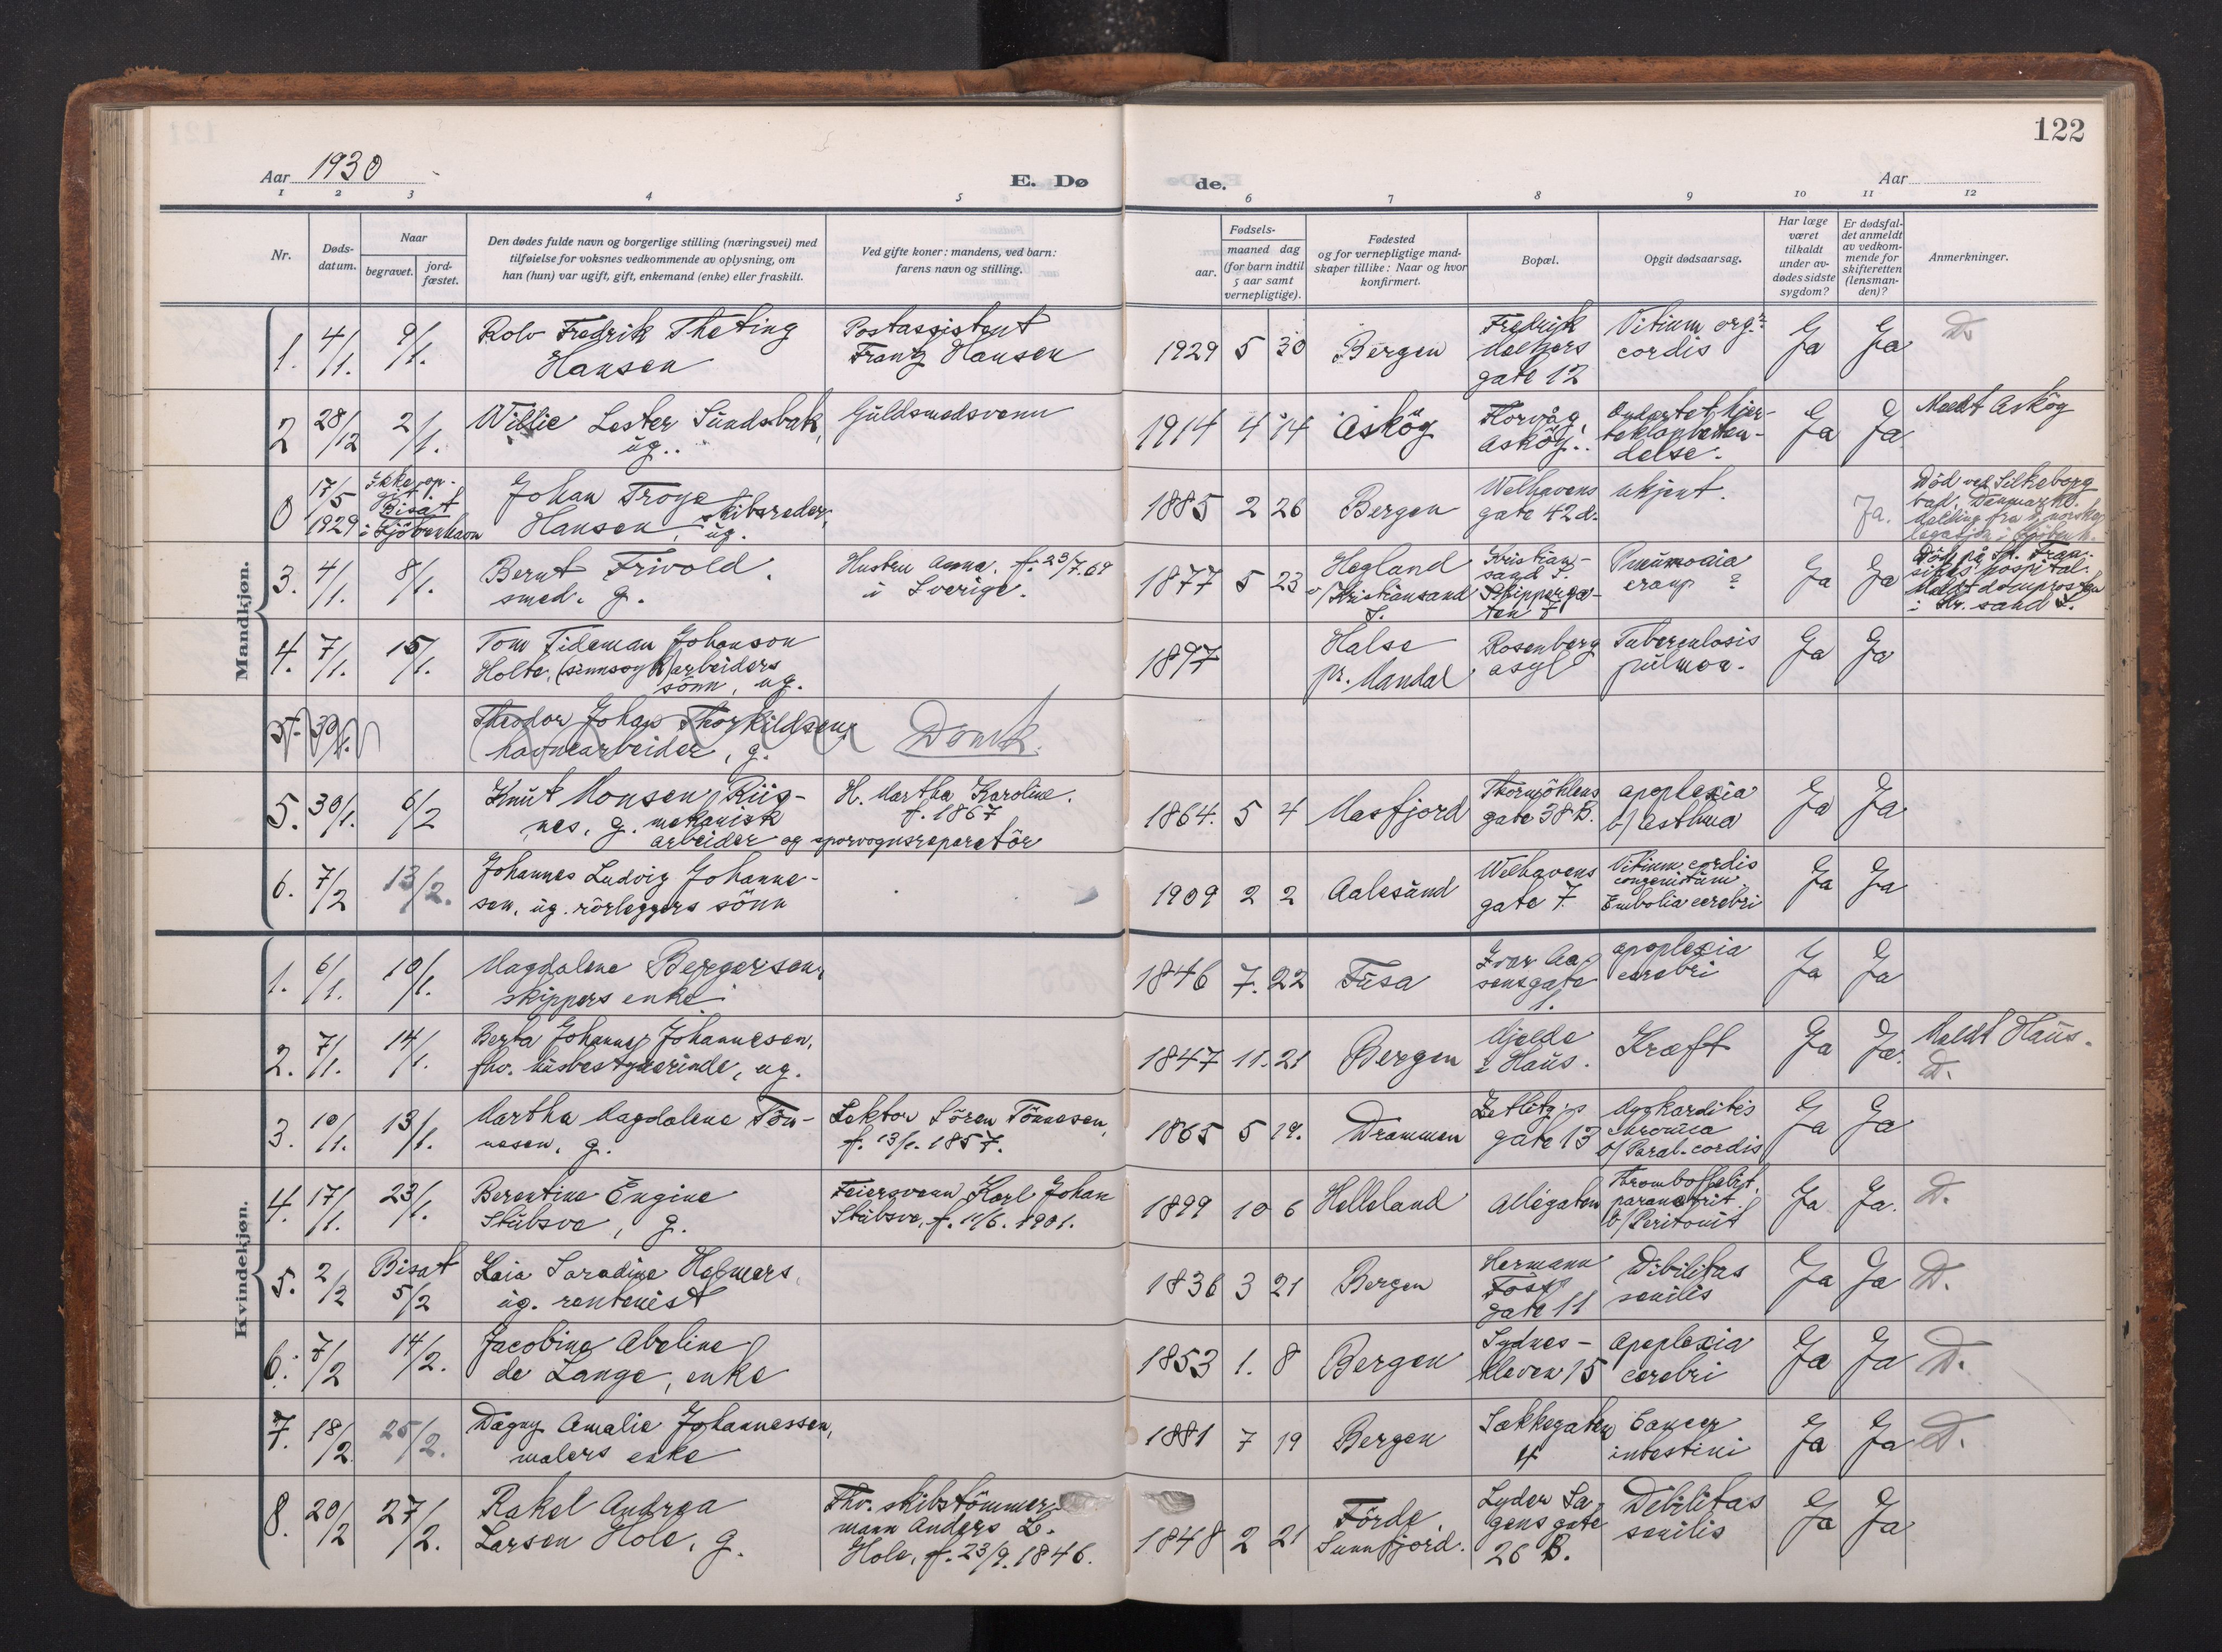 122
Aar 1930
E. Dø
de.
Aar
1 2 3 4 5 6 7 8 9 10 11 12
Nr.
Døds-
datum.
Naar
begravet.
jord-
fæstet.
Den dødes fulde navn og borgerlige stilling (næringsvei) med
tilføielse for voksnes vedkommende av oplysning, om
han (hun) var ugift, gift, enkemand (enke) eller fraskilt.
Ved gifte koner: mandens, ved barn:
farens navn og stilling.
Fødsels-
aar.
maaned dag
(for barn indtil
5 aar samt
vernepligtige).
Fødested
og for vernepligtige mand-
skaper tillike: Naar og hvor
konfirmert.
Bopæl.
Opgit dødsaarsag.
Har læge
været
tilkaldt
under av-
dødes sidste
sygdom?
Er dødsfal-
det anmeldt
av vedkom-
mende for
skifteretten
(lensman-
den)?
Anmerkninger.
Mandkjøn.
1. 4/1. 9/1. Rolv Fredrik Theting
Hansen
Postassistent
Frantz Hansen
1929 5 30 Bergen
Fredrik
Meltzers
gate 12
Vitium org.
cordis
Ja Ja D.
2 28/12 2/1. Willie Lester Sundsbak,
ug.
Guldsmedsvenn
1914 4 14 Asköy
Florvåg,
Asköy.
Ondartet hjer-
teklapbeten-
delse.
Ja Ja Meldt Asköy
0 17/5 1929
Ikke op-
git.
Bisat
i Kjöbenhavn
Johan Troye
Hansen, skibsreder,
ug.
1885 2 26 Bergen
Welhavens
gate 42 d.
ukjent.
Ja.
Död ved Silkeborg
bad, Danmark.
Melding fra d. norske
legasjon i Kjöbenh.
3. 4/1. 8/1. Bernt Frivold.
smed. g.
Hustru Anna. f. 23/7.69
i Sverige.
1877 5 23 Hegland
v/Kristiansand
S.
Kristian-
sand S.
Skipperga-
ten 7
Pneumonia
croup ?
Ja Ja
Död på St. Fran-
siskus hospital.
Meldt domprosten
i Kr. sand S.
4. 7/1. 15/1. Tom Tideman Johanson
Holte, (sinnsyk) arbeiders
sönn, ug.
1897 Halse
pr. Mandal
Rosenberg
asyl
Tuberculosis
pulmon.
Ja Ja
5. 30/1. Theodor Johan Thorkildsen,
havnearbeider, g.
Domk.
5. 30/1. 6/2 Knut Monsen Riis-
nes, g. mekanisk
arbeider og sporvognsreparatör
H. Martha Karoline.
f. 1867
1864. 5 4 Masfjord
Thormöhlens
gate 38 B.
apoplexia
v/ Asthma
Ja Ja
6. 7/2 13/2. Johannes Ludvig Johanne-
sen, ug. rörleggers sönn
1909 2 2 Aalesund
Welhavens
gate 7.
Vitium cordis
congenitum
Embolia cerebri
Ja Ja
Kvindekjøn.
1. 6/1. 10/1. Magdalene Bergersen,
skippers enke.
1846 7. 22 Fusa
Ivar Aa-
sensgate
1.
apoplexia
cerebri
Ja Ja
2. 7/1. 14/1. Berta Johanne Johannesen,
fhv. husbestyrerinde, ug.
1847 11. 21 Bergen
Mjelde
i Haus.
Kræft
Ja Ja. Meldt Haus.
D.
3. 10/1. 13/1. Martha Magdalena Tön-
nesen, g.
Lektor Sören Tönnesen,
f. 13/1. 1857.
1865 5 19. Drammen
Zetlitz's
gate 13
Myokarditis
chronica
v/ Paral. cordis
Ja Ja
4. 17/1. 23/1. Berentine Engine
Stubsve, g.
Feiersvenn Karl Johan
Stubsve, f. 11/6. 1901.
1899 10 6 Helleland
Allégaten
Tromboflebit.
parametrit.
v/ Peritonit
Ja Ja. D.
5. 2/2 Bisat
5/2
Kaia Saradine Holmers,
ug. rentenist
1836 3 21 Bergen
Hermann
Foss
gate 11
Dibilitas
senilis
Ja Ja D.
6. 7/2 14/2. Jacobine Abeline
de Lange, enke
1853 1. 8 Bergen
Sydnes-
kleven 15
Apoplexia
cerebri
Ja Ja D.
7. 18/2. 25/2. Dagny Amalie Johannessen,
malers enke
1881 7 19 Bergen
Sækkegaten
4
Cancer
intestini
Ja Ja D.
8. 20/2 27/2. Rakel Andrea
Larsen Hole, g.
Fhv. skibstömmer-
mann Anders L.
Hole, f. 23/9. 1846.
1848 2 21 Förde,
Sunnfjord.
Lyder Sa-
gens gate
26 B.
Debilitas
senilis
Ja Ja